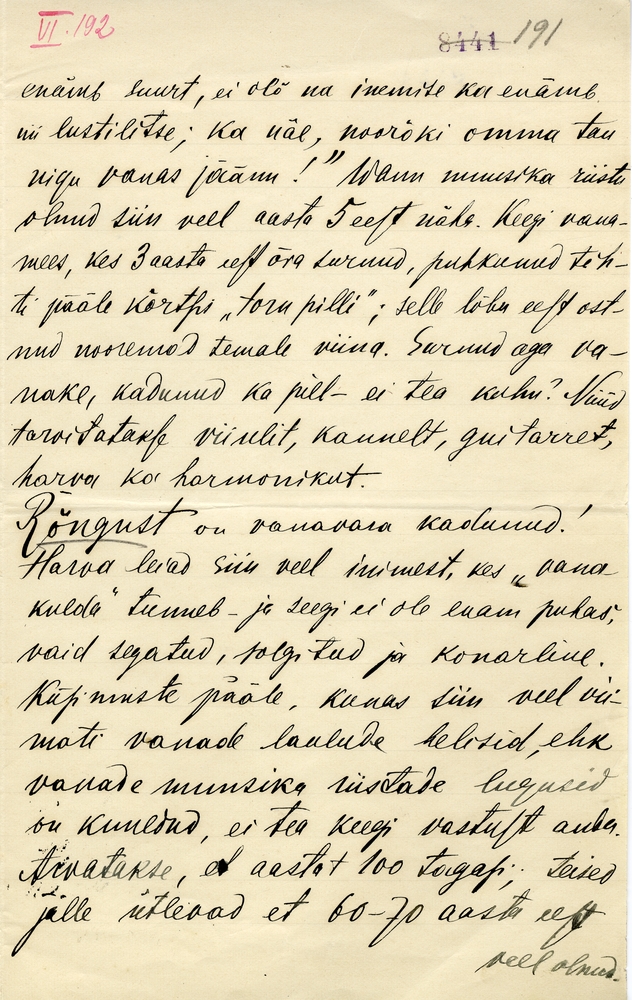 VI. 192
8441 191
enämb suurt, ei olõ na inemise ka enämb
nii lustilitse; ka näe, noorõki omma tan
nigu vanas jäänu!" Wanu muusika riistu
olnud siin veel aasta 5 eest näha. Keegi vana-
mees, kes 3 aasta eest ära surnud, puhkunud tih-
ti pääle kõrtsis „toru pilli"; selle lõbu eest ost-
nud nooremad temale viina. Surnud aga va-
nake, kadunud ka pill - ei tea kuhu? Nüüd
tarvitatakse viiulit, kannelt, guitarret,
harva ka harmonikut.
Rõngust on vanavara kadunud!
Harva leiad siin veel inimest, kes „vana-
kulda" tunneb - ja seegi ei ole enam puhas,
vaid segatud, solgitud ja konarline.
Küsimuste pääle, kunas siin veel vii-
mati vanade laulude helisid, ehk
vanade muusika riistade lugusid
on kuuldud, ei tea keegi vastust anda.
Arvatakse, et aastat 100 tagasi; teised
jälle ütlevad et 60-70 aasta eest
veel olnud.